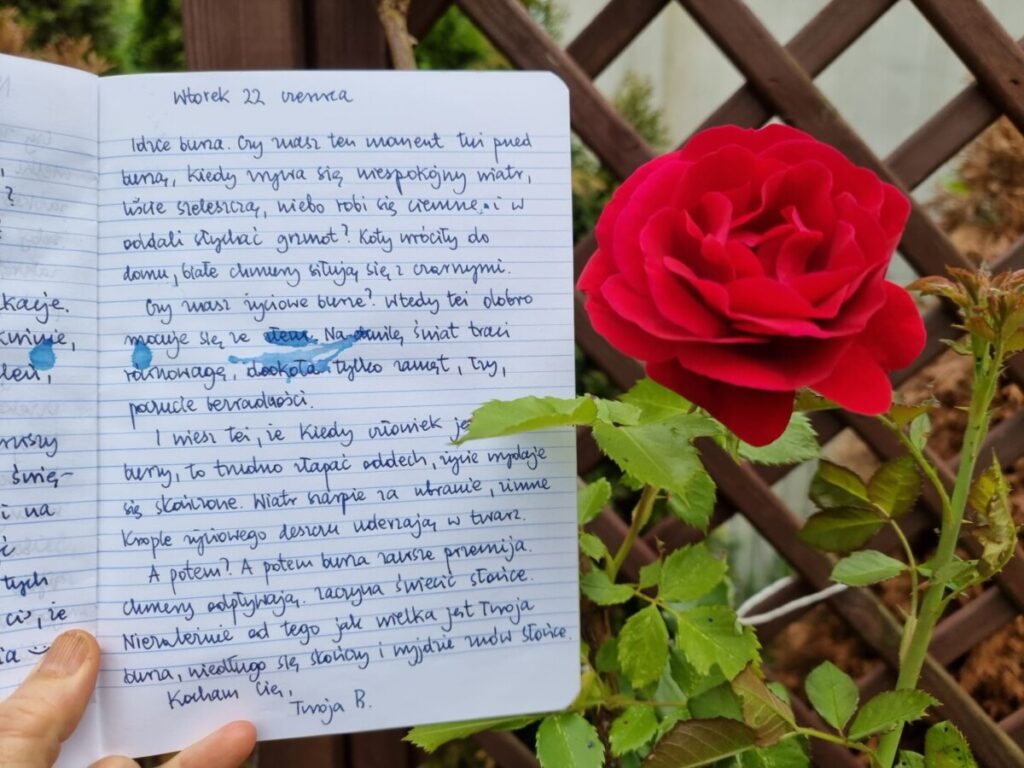 ?
kacje.
i na
tych
Wtorek 22 czerwca
Idzie burza. Czy znasz ten moment tuż przed
burzą, kiedy zrywa się niespokójny wiatr,
liście szeleszczą, niebo robi się ciemne i w
oddali słychać grzmot? Koty wróciły do
domu, białe chmury siłują się z czarnymi.
Czy znasz życiowe burze? Wtedy też dobro
mocuje się ze złem. Na chwilę świat traci
równowagę, dookoła tylko zamęt, łzy,
poczucie bezradności.
I wiesz też, że kiedy człowiek
burzy, to trudno złapać oddech, życie wydaje
się skończone. Wiatr szarpie za ubranie, zimne
krople życiowego deszczu uderzają w twarz.
A potem? A potem burza zawsze przemija.
Chmury odpływają. Zaczyna świecić słońce.
Niezależnie od tego jak wielka jest Twoja
burza, niedługo się skończy i wyjdzie znów słońce.
Kocham Cię,
Twoja B.